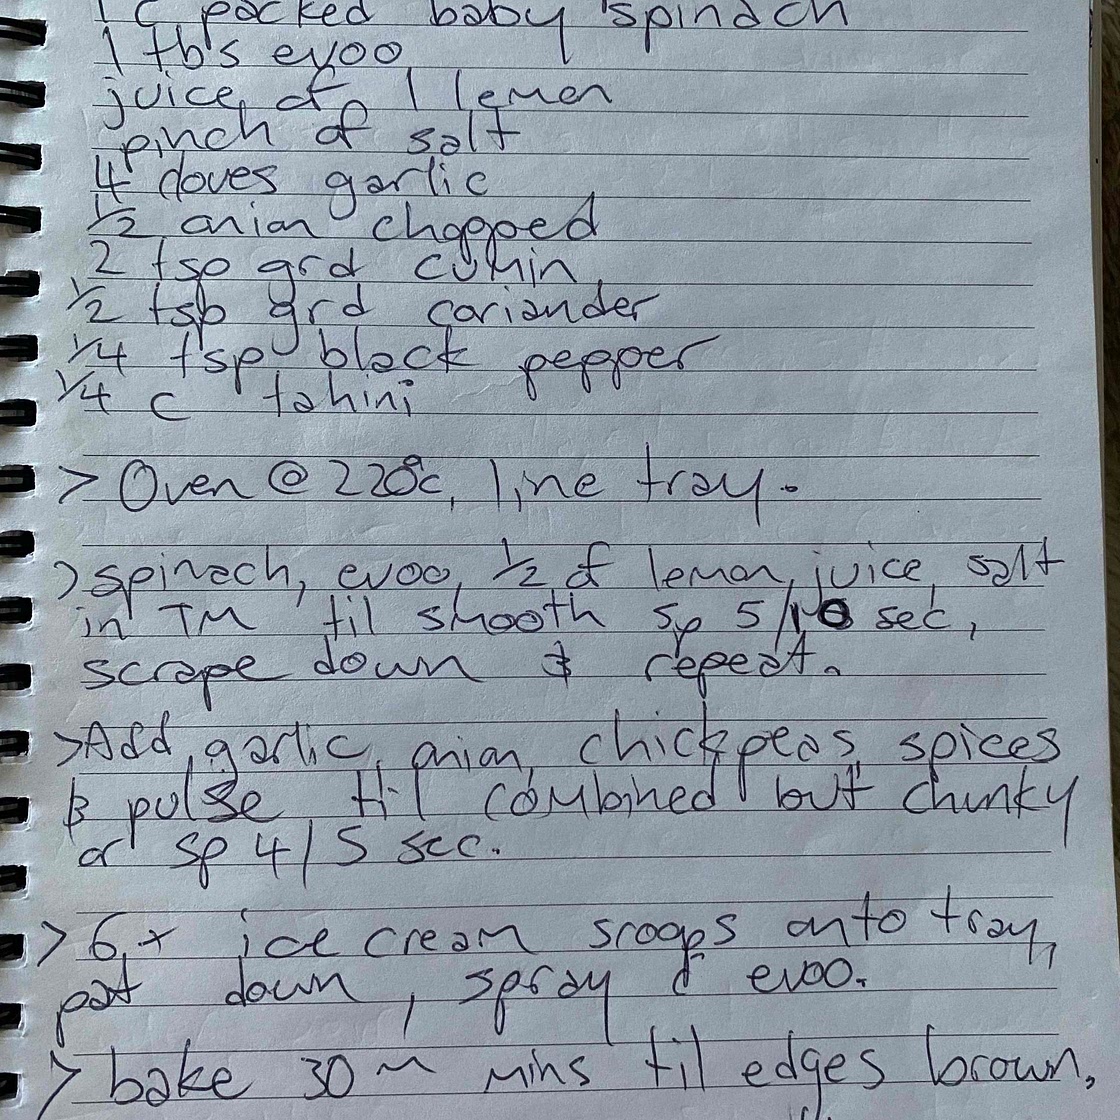 1 c packed baby spinach
1 tbs evoo
juice of 1 lemon
pinch of salt
4 cloves garlic
1/2 onion chopped
2 tsp grd cumin
1/2 tsp grd coriander
1/4 tsp black pepper
1/4 c tahini
> Oven @ 220°c, line tray.
> spinach, evoo, 1/2 of lemon juice, salt
in TM til smooth Sp 5/10 sec,
scrape down & repeat.
> Add garlic, onion, chickpeas, spices
& pulse til combined but chunky
or sp 4/5 sec.
> 6 x ice cream scoops onto tray,
pat down, spray c evoo.
> bake 30 ~ mins til edges brown,